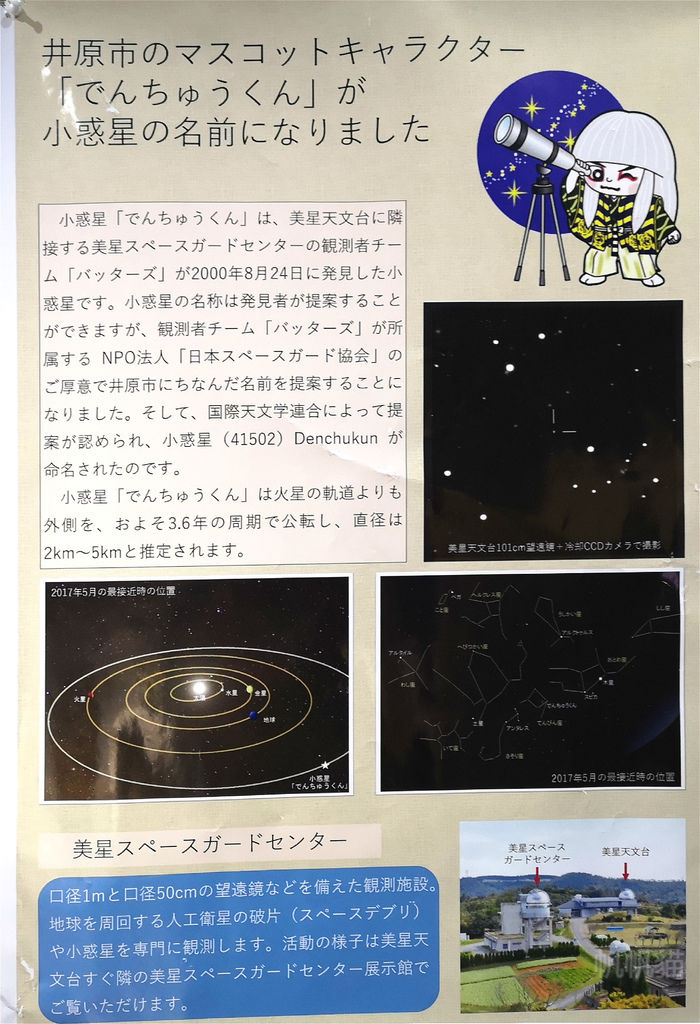 井原市のマスコットキャラクター
「でんちゅうくん」が
小惑星の名前になりました
小惑星「でんちゅうくん」は、美星天文台に隣
接する美星スペースガードセンターの観測者チー
ム「バッターズ」が2000年8月24日に発見した小
惑星です。小惑星の名称は発見者が提案すること
ができますが、観測者チーム「バッターズ」が所
属する NPO法人「日本スペースガード協会」の
ご厚意で井原市にちなんだ名前を提案することに
なりました。そして、国際天文学連合によって提
案が認められ、小惑星（41502）Denchukun が
命名されたのです。
小惑星「でんちゅうくん」は火星の軌道よりも
外側を、およそ3.6年の周期で公転し、直径は
2km～5kmと推定されます。
美星天文台101cm望遠鏡＋冷却CCDカメラで撮影
2017年5月の最接近時の位置
火星
水星
金星
地球
小惑星
「でんちゅうくん」
ベガ
ヘルクレス座
こと座
うしかい座
しし座
アルクトゥルス
アルタイル
へびつかい座
おとめ座
わし座
木星
スピカ
でんちゅうくん
土星
アンタレス
てんびん座
いて座
さそり座
2017年5月の最接近時の位置
美星スペースガードセンター
口径1mと口径50cmの望遠鏡などを備えた観測施設。
地球を周回する人工衛星の破片（スペースデブリ）
や小惑星を専門に観測します。活動の様子は美星天
文台すぐ隣の美星スペースガードセンター展示館で
ご覧いただけます。
美星スペース
ガードセンター
美星天文台